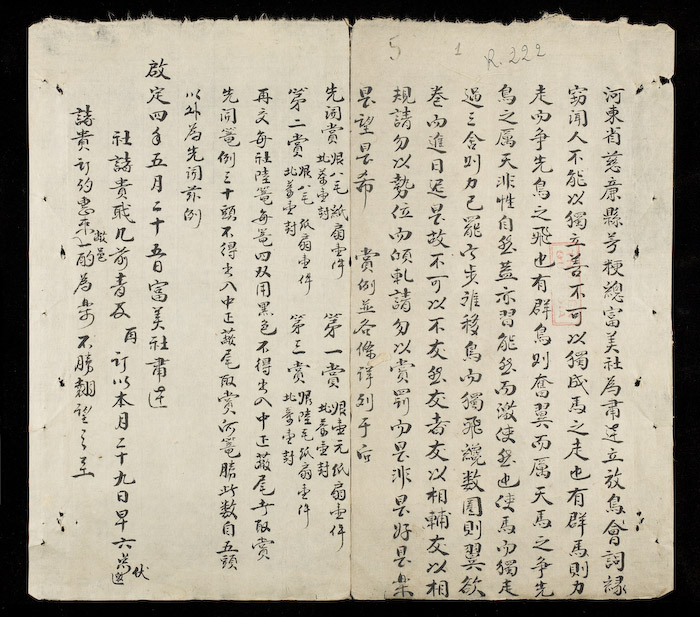 5
1
R.222
河東省慈廉縣芳粳總富美社為肅迓立放鳥會詞緣
窃聞人不能以獨立善不可以獨成馬之走也有群馬則力
走而争先鳥之飛也有群鳥則奮翼而厲天馬之争先
鳥之厲天非性自然蓋亦習能然而激使然也使馬而獨走
過三舍則力已罷六步雖移鳥而獨飛繞数圍則翼欲
巻而進日遅是故不可以不友然友者友以相輔友以相
規請勿以勢位而傾軋請勿以賞罰而是非是好是楽
是望是希 賞例並各條詳列于后
先詞賞 銀八毛紙扇壹件 北蓄壹封 第一賞 銀壹元紙扇壹件 北蓄壹封
第二賞 銀八毛紙扇壹件 北蓄壹封 第三賞 銀陸毛紙扇壹件 北蓄壹封
再交每社陸篭每篭四双用黒色不得尖入中正蔽尾方取賞
先開篭例三十頭不得尖入中正蔽尾取賞何篭勝此数自五頭
以外為先詞茲例
啟定四年五月二十五日富美社肅迓
社諸貴戢几前書及 再訂以本月二十九日早六 伏
諸貴訂約惠来 敝邑 酌為楽不勝翹望之至